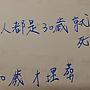 人都是30歲就
死
0歲才埋葬